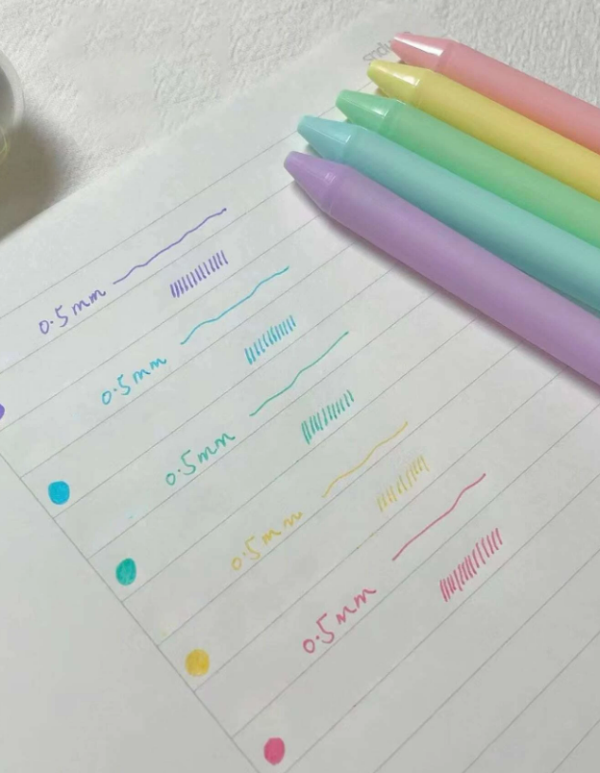 0.5mm
0.5mm
0.5mm
0.5mm
0.5mm